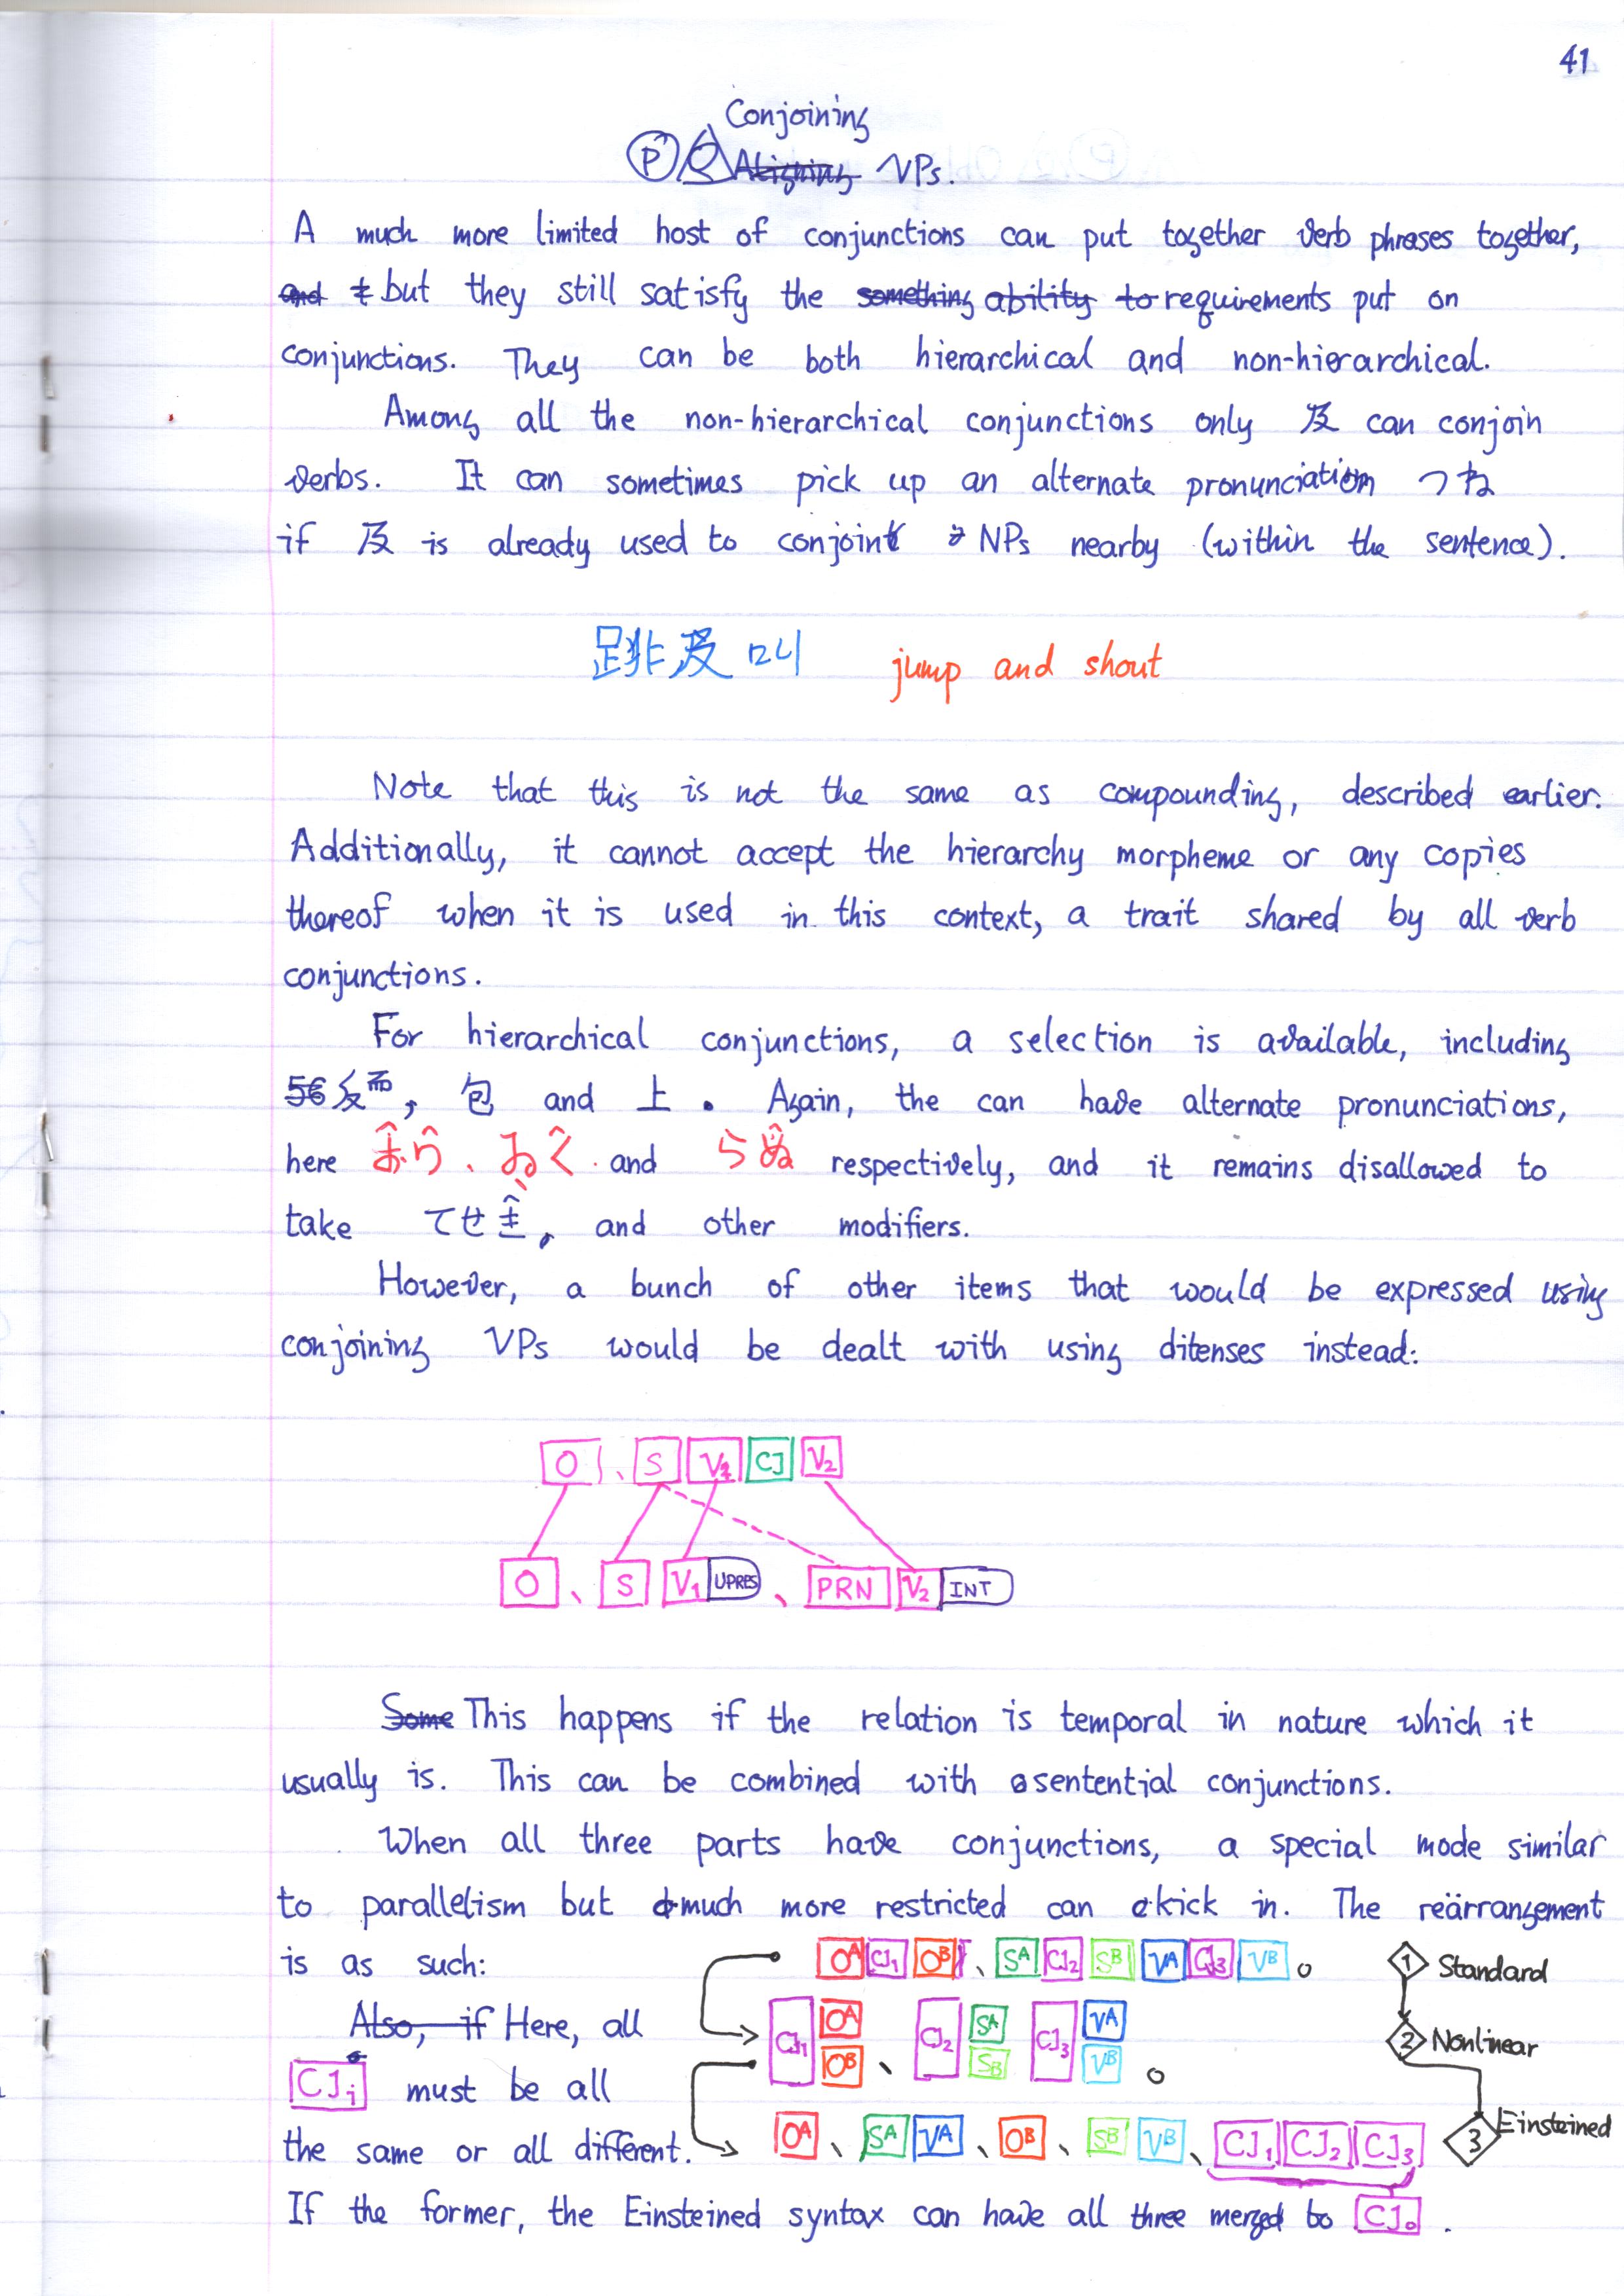 41
Conjoining
Ⓟ Aligning VPs.
A much more limited host of conjunctions can put together verb phrases together,
and but they still satisfy the something ability to requirements put on
conjunctions. They can be both hierarchical and non-hierarchical.
Among all the non-hierarchical conjunctions only 及 can conjoin
verbs. It can sometimes pick up an alternate pronunciation つね
if 及 is already used to conjoin NPs nearby (within the sentence).
跳及叫 jump and shout
Note that this is not the same as compounding, described earlier.
Additionally, it cannot accept the hierarchy morpheme or any copies
thereof when it is used in this context, a trait shared by all verb
conjunctions.
For hierarchical conjunctions, a selection is available, including
包 and 上. Again, the can have alternate pronunciations,
here and respectively, and it remains disallowed to
take and other modifiers.
However, a bunch of other items that would be expressed using
conjoining VPs would be dealt with using ditenses instead:
O 、 S V₂ CJ V₂
O 、 S V₁ UPRES 、 PRN V₂ INT
Some This happens if the relation is temporal in nature which it
usually is. This can be combined with sentential conjunctions.
When all three parts have conjunctions, a special mode similar
to parallelism but much more restricted can kick in. The reärrangement
is as such:
Oᴬ CJ₁ Oᴮ 、 Sᴬ CJ₂ Sᴮ Vᴬ CJ₃ Vᴮ 。
1 Standard
Also, if Here, all
CJ₁ Oᴬ Oᴮ 、 CJ₂ Sᴬ Sᴮ CJ₃ Vᴬ Vᴮ 。
2 Nonlinear
CJᵢ must be all
the same or all different.
Oᴬ 、 Sᴬ Vᴬ 、 Oᴮ 、 Sᴮ Vᴮ 、 CJ₁ CJ₂ CJ₃
3 Einsteined
If the former, the Einsteined syntax can have all three merged to CJ₀ .